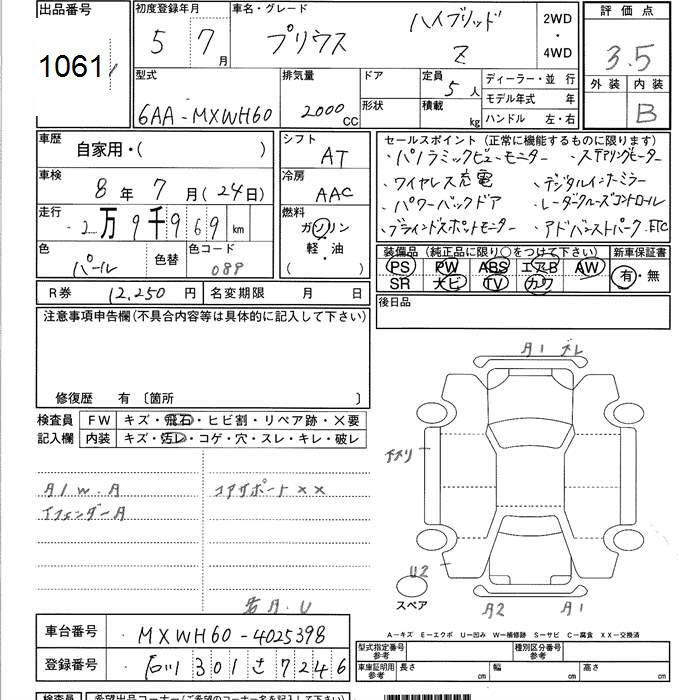 出品番号 初度登録年月 車名・グレード 評価点
1061 5 7月 プリウス ハイブリッド Z 2WD ・ 4WD 3.5
外装 内装
B
型式 排気量 ドア 定員 5人 ディーラー・並 行
6AA-MXWH60 2000cc 形状 積載 kg モデル年式 年
ハンドル 左・右
車歴 自家用・( ) シフト AT
セールスポイント (正常に機能するものに限ります)
・パノラミックビューモニター ・ステアリングヒーター
・ワイヤレス充電 ・デジタルインナーミラー
・パワーバックドア ・レーダークルーズコントロール
・ブラインドスポットモニター ・アドバンストパーク.ETC
車検 8年 7月(24日) 冷房 AAC
走行 2万9千969km 燃料 ガソリン ・ 軽・油 ( )
色 パール 色替 色コード 089
装備品 (純正品に限り○をつけて下さい) 新車保証書
PS PW ABS エアB AW 有・無
SR ナビ TV カワ
R券 12,250円 名変期限 月 日
後日品
注意事項申告欄(不具合内容等は具体的に記入して下さい)
修復歴 有 〔箇所 〕
検査員 FW キズ・飛石・ヒビ割・リペア跡・×要
記入欄 内装 キズ・汚レ・コゲ・穴・スレ・キレ・破レ
A1 W.A コアサポート××
A1 ズレ
U2
スペア
A2 A1
A-キズ E-エクボ U-凹み W-補修跡 S-サビ C-腐食 XX-交換済
車台番号 MXWH60-4025398
登録番号 石川 301 さ 7246
型式指定番号 参考 種別区分番号 参考
車庫証明用 参考 長さ 幅 高さ
検査員 希望出品コーナー(ご希望のコーナー名を記入して下さい)